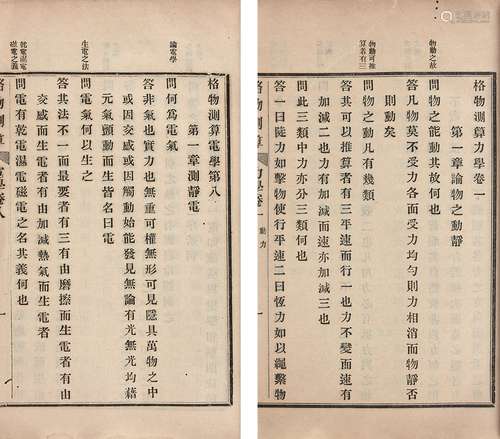 物動之故
物動可推
算者有三
格物測算力學卷一
第一章論物之動靜
問物之能動其故何也
答凡物莫不受力各面受力均勻則力相消而物靜否
則動矣
問物之動凡有幾類
答其可以推算者有三平速而行一也力不變而速有
加減二也力有加減而速亦加減三也
問此三類中力亦分三類何也
答一曰陡力如擊物使行平速二曰恆力如以繩繫物
格物測算 力學卷一 動力
論電學
生電之法
乾電濕電
磁電之義
格物測算電學第八
第一章測靜電
問何爲電氣
答非氣也實力也無重可權無形可見隱具萬物之中
或因交感或因觸動始能發見無論有光無光均藉
元氣顯動而生皆名曰電
問電氣何以生之
答其法不一而最要者有三有由磨擦而生電者有由
交感而生電者有由加減熱氣而生電者
問電有乾電濕電磁電之名其義何也
格物測算 電學卷八 一